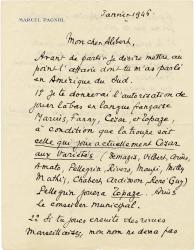 MARCEL PAGNOL
Janvier 1946
Mon cher Alibert,
Avant de partir je désire mettre au
point l'affaire dont tu m'as parlé
en Amérique du Sud.
1º Je te donnerai l'autorisation de
jouer là-bas en langue française
Marius, Fanny, César, et Topaze,
à condition que la troupe soit
celle qui joue actuellement César
aux Variétés (Demazis, Vibert, Arius,
Amato, Pellegrin, Rivers, Maupi, Matty,
Mathy, Chabert, Ardimon, René Guy)
Pellegrin jouera Topaze. Arius
le conseiller municipal.
2º Si tu joues ensuite des revues
marseillaises, mon nom ne devra pas